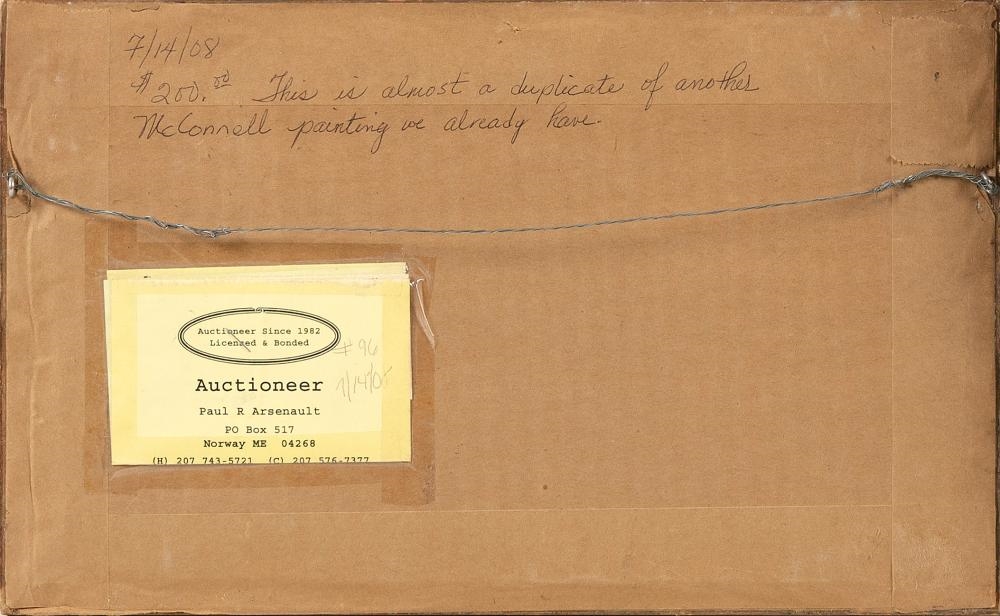 7/14/08
$200.00 This is almost a duplicate of another
McConnell painting we already have.
Auctioneer Since 1982
Licensed & Bonded
# 96
7/14/08
Auctioneer
Paul R Arsenault
PO Box 517
Norway ME 04268
(H) 207 743-5721 (C) 207 576-7377